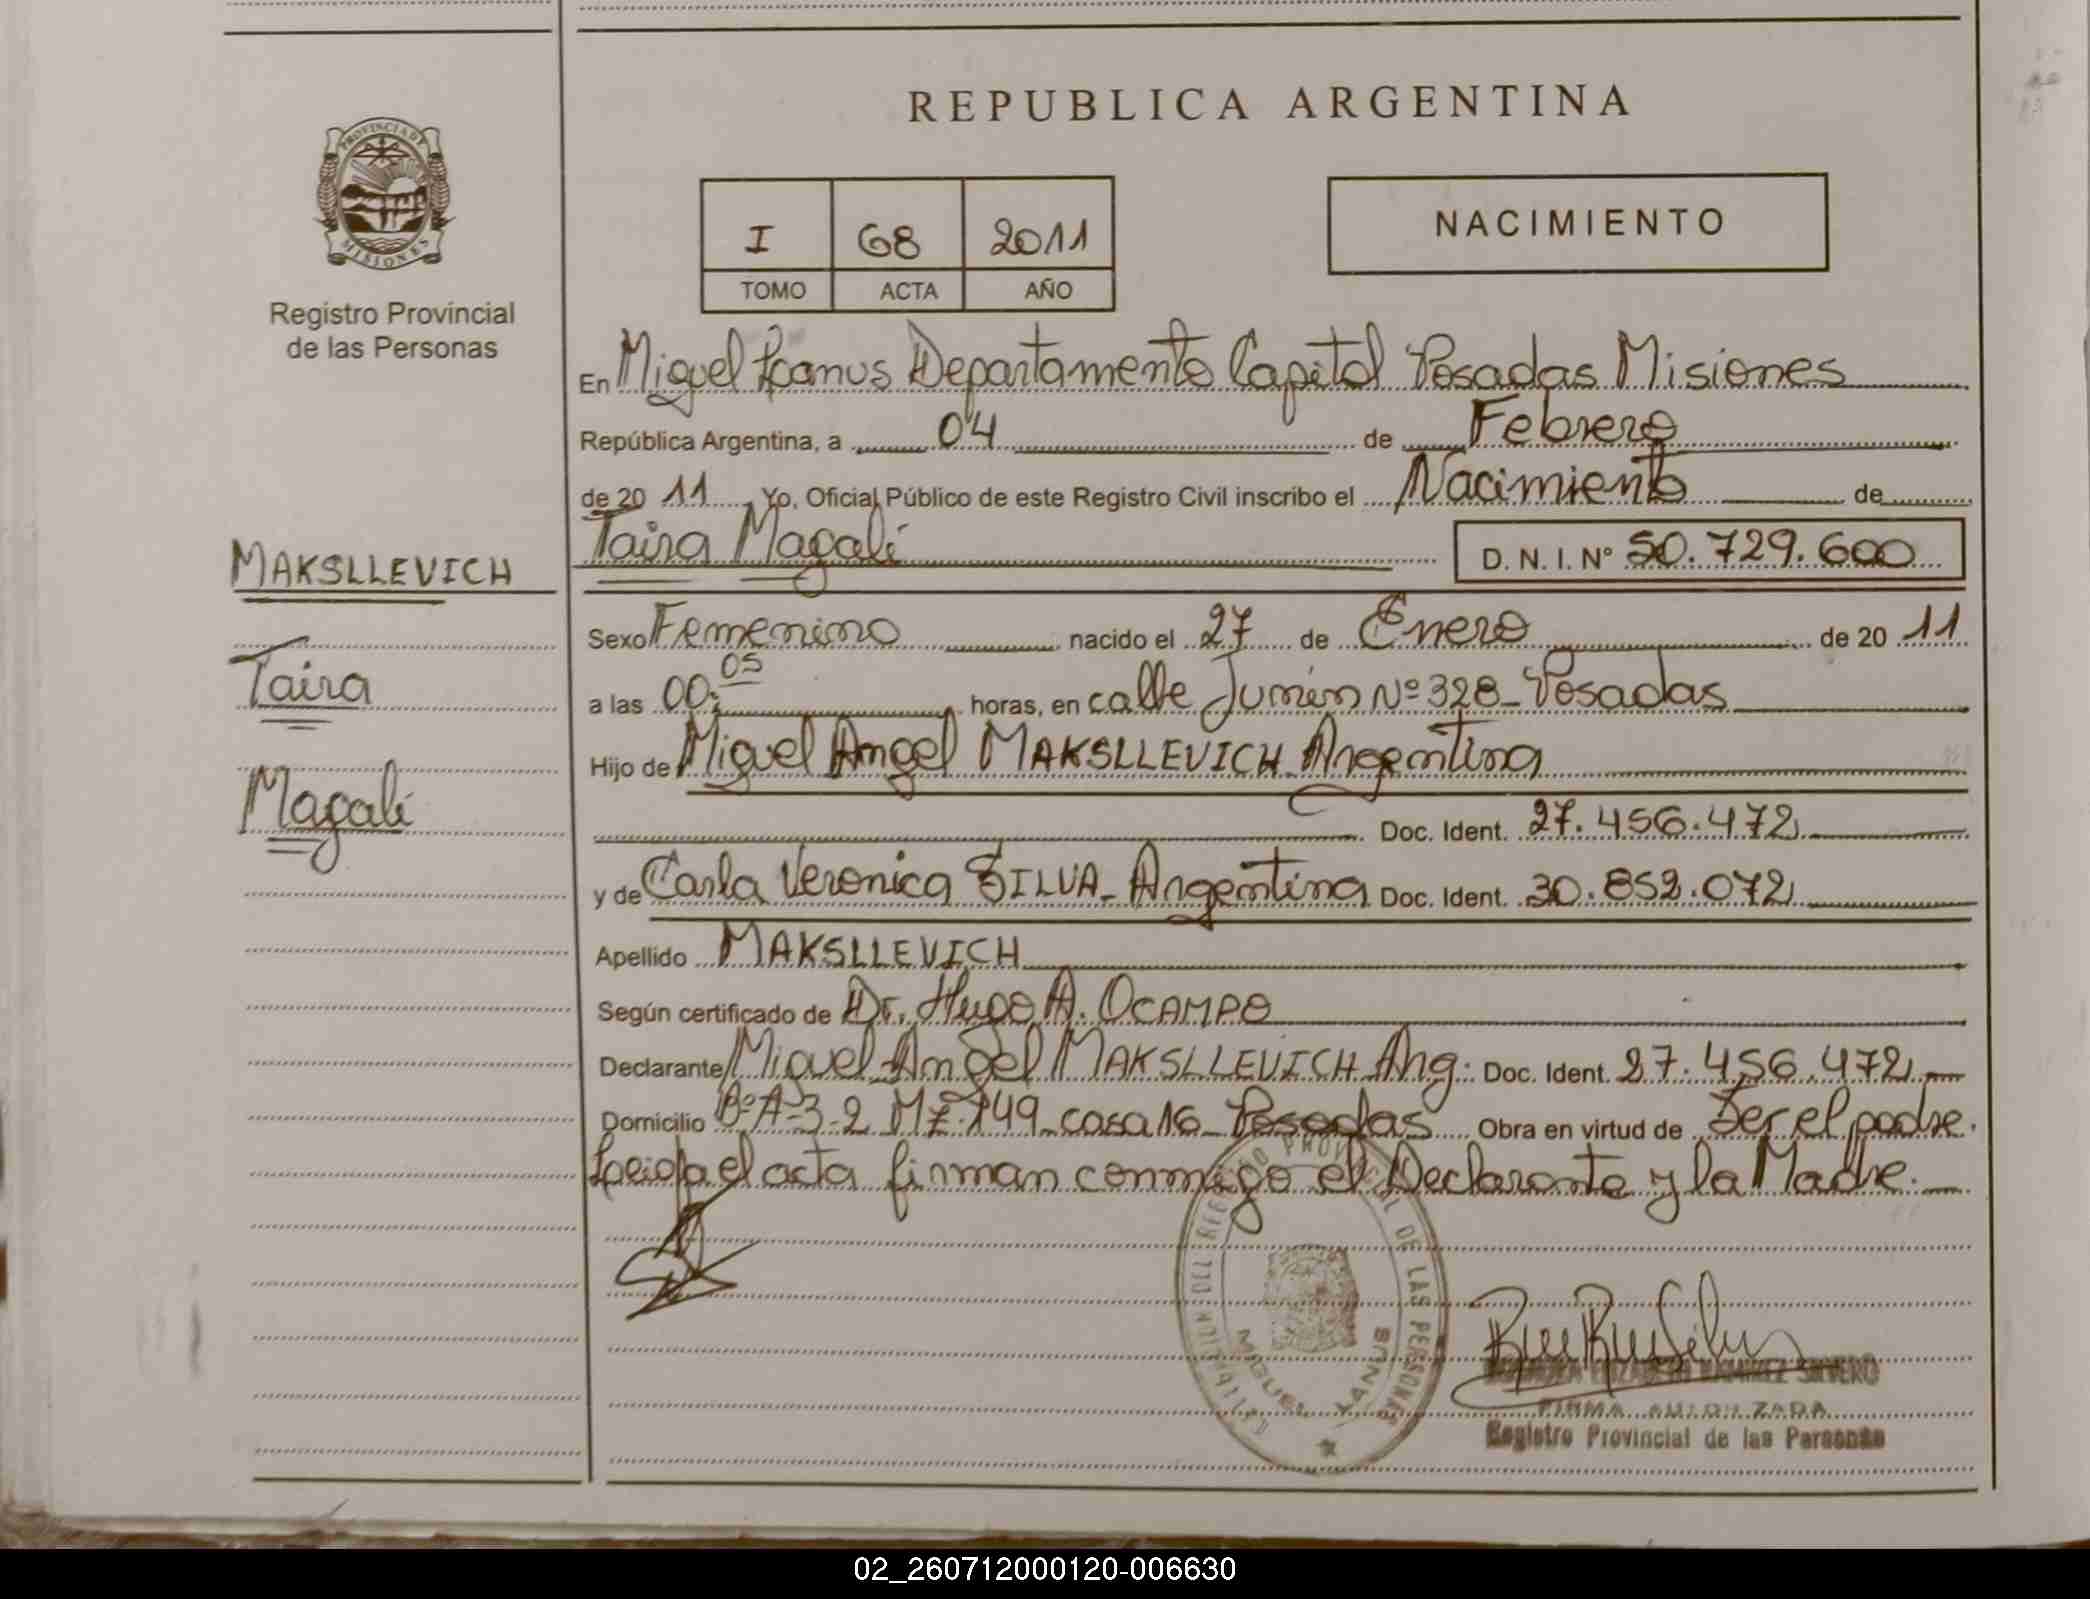 REPUBLICA ARGENTINA
PROVINCIA DE MISIONES
Registro Provincial
de las Personas
I 68 2011
TOMO ACTA AÑO
NACIMIENTO
En Miguel Lanus Departamento Capital Posadas Misiones
República Argentina, a 04 de Febrero
de 20 11 Yo, Oficial Público de este Registro Civil inscribo el Nacimiento de
Taira Magalí D. N. I. Nº 50.729.600
MAKSLLEVICH
Taira
Magalí
Sexo Femenino nacido el 27 de Enero de 20 11
a las 00:05 horas, en calle Junín Nº 328 - Posadas
Hijo de Miguel Angel MAKSLLEVICH - Argentina
Doc. Ident. 27.456.472
y de Carla Veronica SILVA - Argentina Doc. Ident. 30.852.072
Apellido MAKSLLEVICH
Según certificado de Dr. Hugo A. OCAMPO
Declarante Miguel Angel MAKSLLEVICH Arg. Doc. Ident. 27.456.472
Domicilio Bº A-3-2 MZ. 149 - casa 16 - Posadas Obra en virtud de Ser el padre.
Leida el acta firman conmigo el Declarante y la Madre.
DEL REGISTRO PROVINCIAL DE LAS PERSONAS
MIGUEL LANUS
RAMIREZ SILVERO
FIRMA AUTORIZADA
Registro Provincial de las Personas
02_260712000120-006630